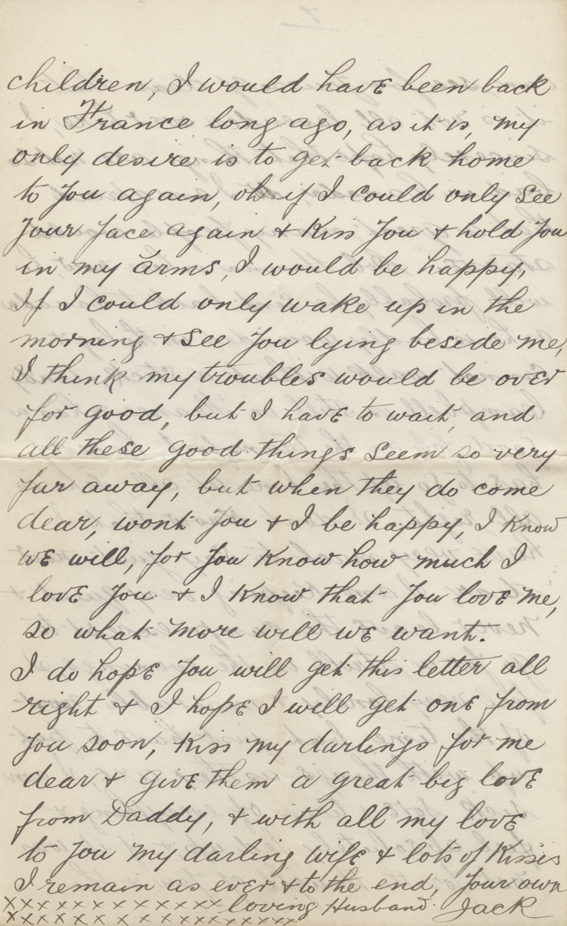 children, I would have been back
in France long ago, as it is, my
only desire is to get back home
to you again, oh if I could only see
your face again & Kiss you & hold you
in my arms, I would be happy,
If I could only wake up in the
morning & see you lying beside me,
I think my troubles would be over
for good, but I have to wait, and
all these good things seem so very
far away, but when they do come
dear, wont you & I be happy, I Know
we will, for you Know how much I
love you & I Know that you love me,
so what more will we want.
I do hope you will get this letter all
right & I hope I will get one from
you soon, Kiss my darlings for me
dear & give them a great big love
from Daddy, & with all my love
to you my darling wife & lots of Kisses
I remain as ever & to the end, your own
xxxxxxxxxxxxx loving Husband. Jack
xxxxxxxxxxxxxxxxxx